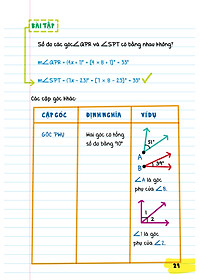 BÀI TẬP
Số đo các góc ∠QPR và ∠SPT có bằng nhau không?
m∠QPR = (4x + 1)° = (4 × 8 + 1)° = 33°
m∠SPT = (7x - 23)° = (7 × 8 - 23)° = 33°
Các cặp góc khác:
CẶP GÓC
ĐỊNH NGHĨA
VÍ DỤ
GÓC PHỤ
Hai góc có tổng
số đo bằng 90°
51°
A
B
39°
∠A là góc
phụ của ∠B.
1
2
∠1 là góc
phụ của ∠2.